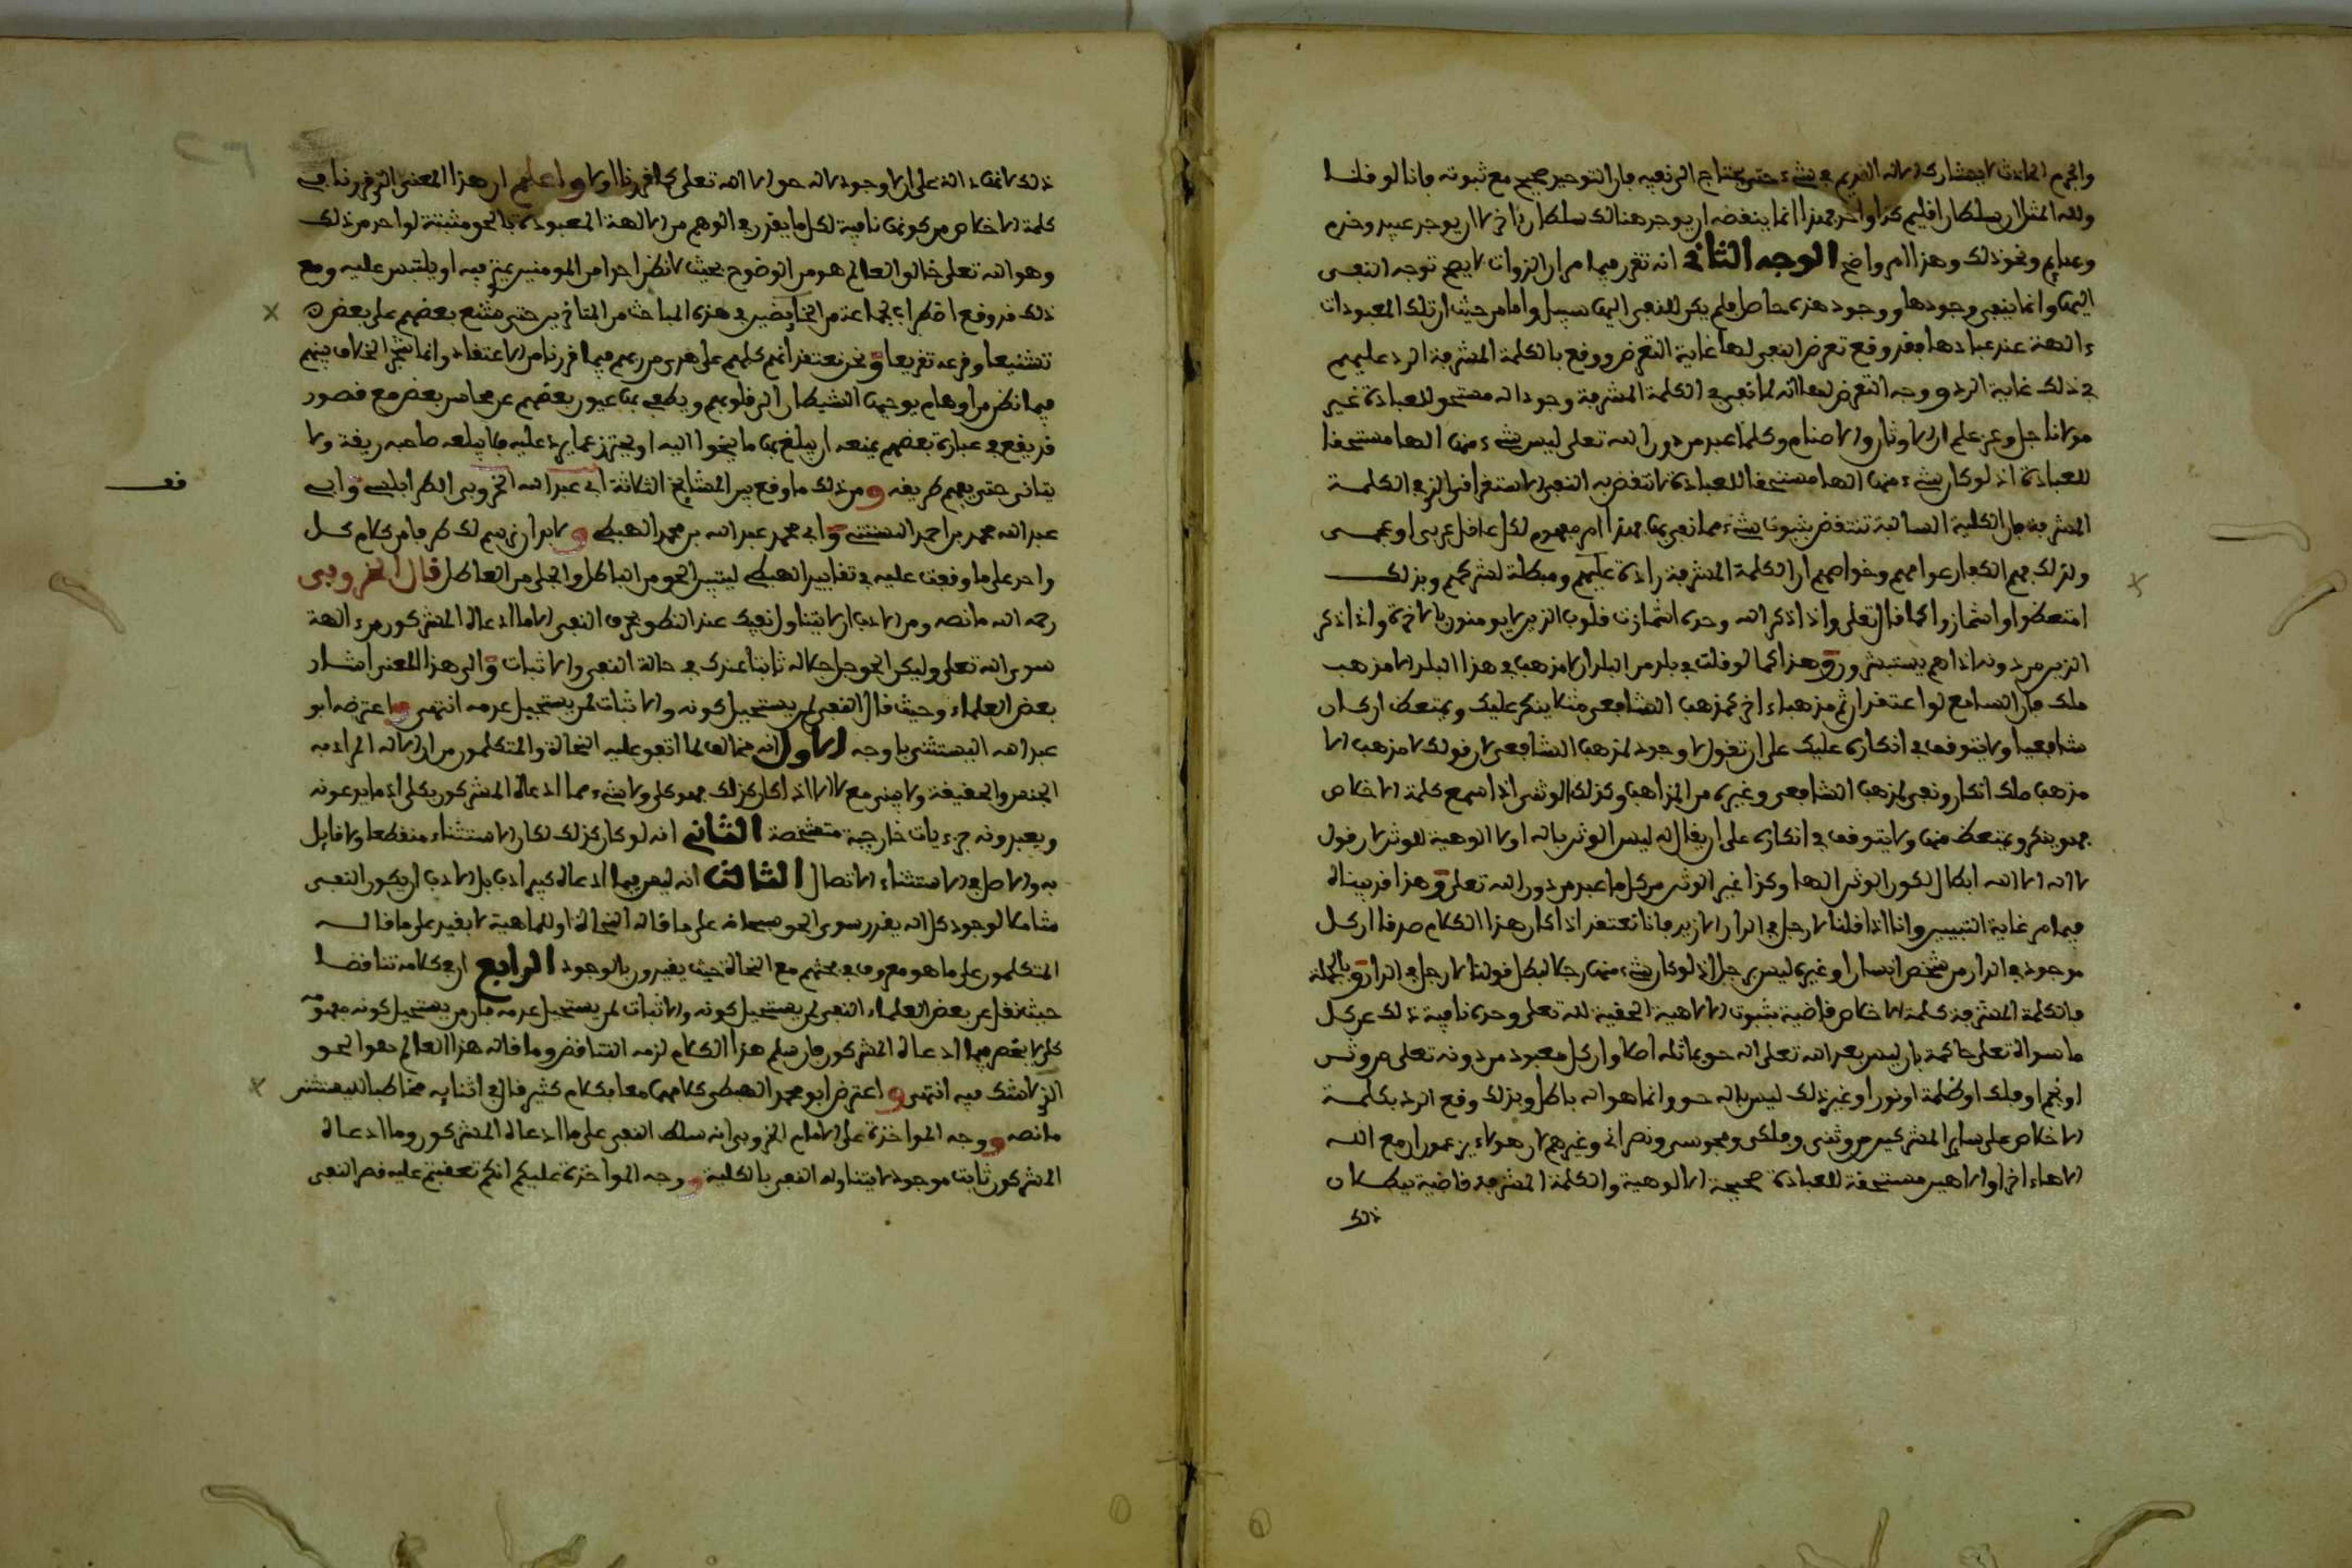 والجرم الحادث لا يشارك الاله القديم في شيء حتى يحتاج الى نفيه فان التوحيد صحيح مع ثبوته فانا لو قلنا
ولله المثل ان سلطان اقليم كذا واحد فهذا انما ينقضه ان يوجد هنالك سلطان ءاخر لا ان يوجد عبيد وخدم
ونحو ذلك وهذا امر واضح الوجه الثاني انه تقرر فيما مر ان الذوات لا يصح توجه النفي
اليها وانما ينفى وجودها ووجود هذه حاصل فلم يكن للنفي اليها سبيل واما من حيث ان تلك المعبودات
ءالهة عند عبادها فقد وقع تعرض النفي لها غاية التعرض ووقع بالكلمة المشرفة الرد عليهم
في ذلك غاية الرد ووجه التعرض لها انه لما نفي في الكلمة المشرفة وجود اله مستحق للعبادة غير
مولانا جل وعز علم ان الاوثان والاصنام وكلما عبد من دون الله تعلى ليس شيء منها الها مستحقا
للعبادة اذ لو كان شيء منها الها مستحقا للعبادة لانتقض به النفي الاستغراقي الذي في الكلمة
المشرفة فان الكلية السالبة تنتقض بثبوت شيء مما نفي بها فهذا امر مفهوم لكل عاقل عربي او عجمي
ولذلك فهم الكفار عوامهم وخواصهم ان الكلمة المشرفة رادة عليهم ومبطلة لشركهم وبذلك
امتعظوا واشمازوا كما قال تعلى واذا ذكر الله وحده اشمازت قلوب الذين لا يومنون بالاخرة واذا ذكر
الذين من دونه اذا هم يستبشرون وهذا كما لو قلت في بلد من البلدان لا مذهب في هذا البلد الا مذهب
ملك فان السامع لو اعتقد ان ثم مذهبا ءاخر كمذهب الشافعي مثلا ينكر عليك ويمتعظ ان كان
شافعيا ولا يتوقف في انكاره عليك على ان تقول لا وجود لمذهب الشافعي لان قولك لا مذهب الا
مذهب ملك انكار ونفي لمذهب الشافعي وغيره من المذاهب وكذلك الوثني اذا سمع كلمة الاخلاص
فهو ينكر ويمتعظ منها ولا يتوقف في انكاره على ان يقال له ليس الوثن باله او لا الوهية للوثن لان قول
لا اله الا الله ابطال لكون الوثن الها وكذا غير الوثن من كل ما عبد من دون الله تعلى وهذا قد بيناه
فيما مر غاية التبيين وانا اذا قلنا لا رجل في الدار الا زيد فانا نعتقد اذا كان هذا الكلام صدقا ان كل
موجود في الدار من شخص انسان او غيره ليس برجل اذ لو كان شيء منها رجلا لبطل قولنا لا رجل في الدار وبالجملة
فالكلمة المشرفة كلمة الاخلاص قاضية بثبوت الالاهية الحقية لله تعلى وحده نافية ذلك عن كل
ما سواه تعلى حاكمة بان ليس بعد الله تعلى اله حق يماثله اصلا وان كل معبود من دونه تعلى من وثن
او نجم او فلك او ظلمة او نور او غير ذلك ليس باله حق وانما هو اله باطل وبذلك وقع الرد بكلمة
الاخلاص على ساير المشركين من وثني وفلكي ومجوسي ونصراني وغيرهم لان هولاء يزعمون ان مع الله
الاها ءاخر او الاهين مستحقة للعبادة صحيحة الالوهية والكلمة المشرفة قاضية ببطلان
ذلك
ذلك لانها دالة على ان لا وجود لاله حق الا الله تعلى كما قررنا اولا واعلم ان هذا المعنى الذي قررناه في
كلمة الاخلاص من كونها نافية لكل ما يقدر في الوهم من الالهة المعبودة بالحق مثبتة لواحد من ذلك
وهو الله تعلى خالق العالم هو من الوضوح بحيث لا نظن احدا من المومنين يمتري فيه او يلتبس عليه ومع
ذلك قد وقع اضطراب لجماعة من الخايضين في هذه المباحث من المتاخرين حتى شنع بعضهم على بعض
تشنيعا وفرعه تقريعا ونحن نعتقد انهم كلهم على هدى من ربهم فيما قررنا من الاعتقاد وانما نتج الخلاف بينهم
فيما نظن من اوهام يوحيها الشيطان الى قلوبهم ويطمي بها عيون بعضهم عن محاسن بعض مع قصور
قد يقع في عبارة بعضهم يمنعه ان يبلغ بها ما ينحوا اليه او يحترز عما يرد عليه فلا يبلعه صاحبه ريقه ولا
يتانى حتى يفهم طريقه ومن ذلك ما وقع بين المشايخ الثلاثة ابي عبد الله الخروبي الطرابلسي وابي
عبد الله محمد بن احمد اليستثني وابي محمد عبد الله بن محمد الهبطي ولا بد ان نرسم لك طرفا من كلام كل
واحد على ما وقعت عليه في تقاييد الهبطي ليتبين الحق من الباطل والحلي من العاطل قال الخروبي
رحمه الله ما نصه ومن الادب ان لا يتناول نفيك عند النطق بحرف النفي الا ما ادعاه المشركون من ءالهة
سوى الله تعلى وليكن الحق جل جلاله ثابتا عندك في حالة النفي والاثبات والى هذا المعنى اشار
بعض العلماء وحيث قال النفي لمن يستحيل كونه والاثبات لمن يستحيل عدمه انتهى واعترضه ابو
عبد الله اليستثني باوجه الاول انه مخالف لما اتفق عليه النحاة والمتكلمون من ان الاله المراد به
الجنس والحقيقة ولا يبنى مع لا الا اذا كان كذلك فهو كلي ولا شيء مما ادعاه المشركون بكلي اذ ما يدعونه
ويعبدونه جزءيات خارجية متشخصة الثاني انه لو كان كذلك لكان الاستثناء منقطعا ولا قايل
به والاصل في الاستثناء الاتصال الثالث انه ليس فيما ادعاه كبير ادب بل الادب ان يكون النفي
شاملا لوجود كل اله يقدر سوى الحق سبحانه على ما قاله النحاة او للماهية لا بقيد على ما قاله
المتكلمون على ما هو معروف في بحثهم مع النحاة حيث يقيدون بالوجود الرابع ان في كلامه تناقضا
حيث نقل عن بعض العلماء النفي لمن يستحيل كونه والاثبات لمن يستحيل عدمه فان من يستحيل كونه مفهومه
كلي لا يحصر فيما ادعاه المشركون فان سلم هذا الكلام لزمه التناقض وما قاله هذا العالم هو الحق
الذي لا شك فيه انتهى واعترض ابو محمد الهبطي كلامهما معا بكلام كثير قال في اثنايه مخاطبا لليستثني
ما نصه ووجه المواخذة على الامام الخروبي انه سلط النفي على ما ادعاه المشركون وما ادعاه
المشركون ثابت موجود لا يتناوله النفي بالكلية ووجه المواخذة عليكم انكم تعقبتم عليه قصر النفي